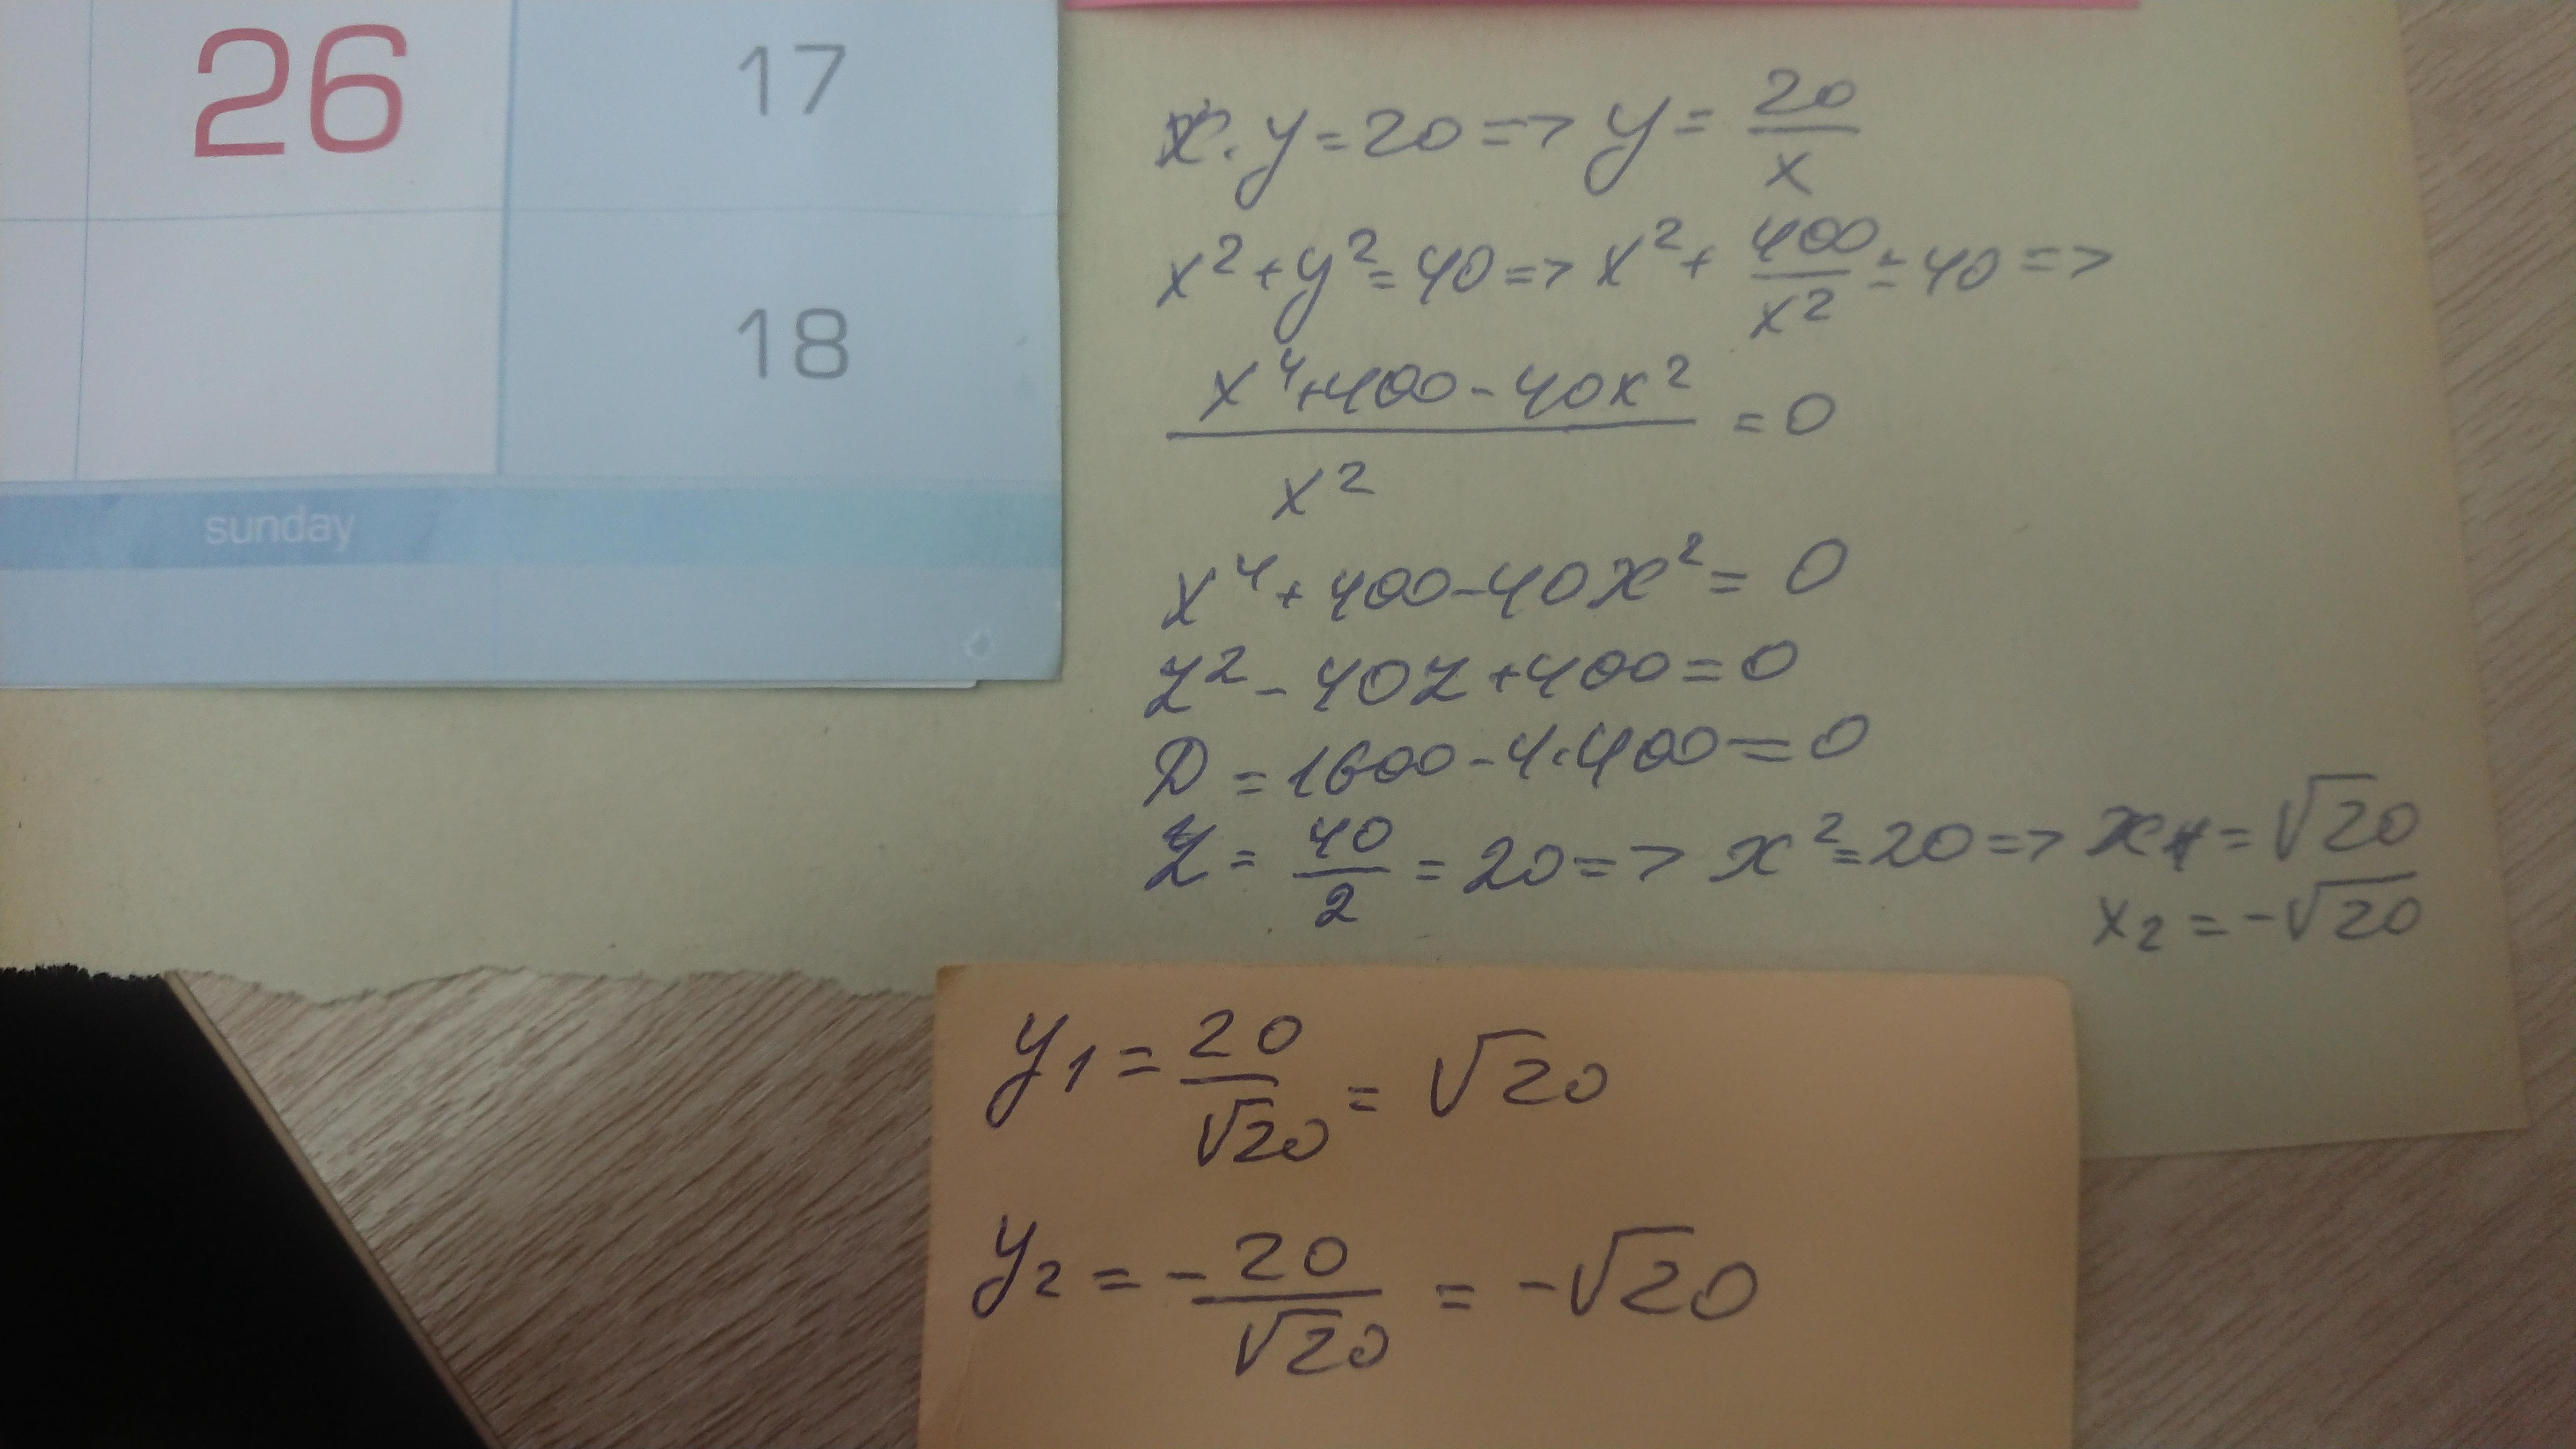 26
17
18
sunday
x·y=20=>y=20/x
x²+y²=40=>x²+400/x²=40=>
(x⁴+400-40x²)/x²=0
x⁴+400-40x²=0
z²-40z+400=0
D=1600-4·400=0
z=40/2=20=>x²=20=>x₁=√20
x₂=-√20
y₁=20/√20=√20
y₂=-20/√20=-√20